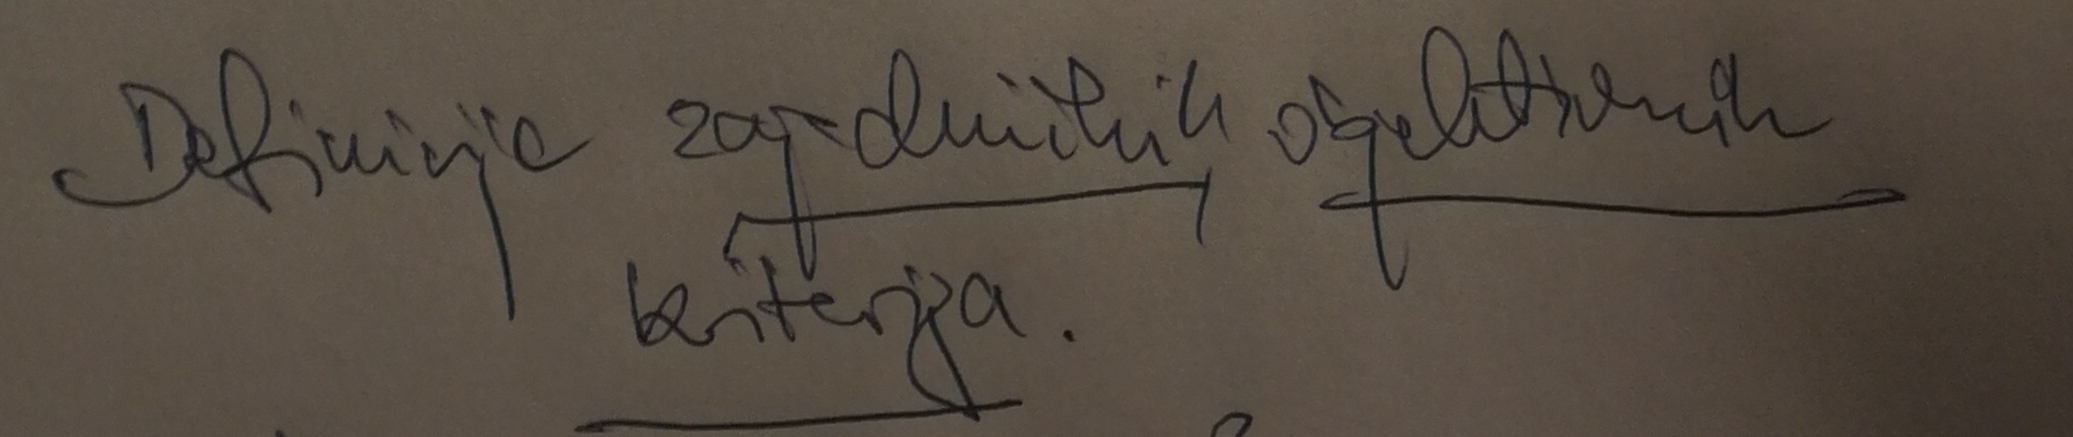 Definicije zajedničkih objektivnih
kriterija.